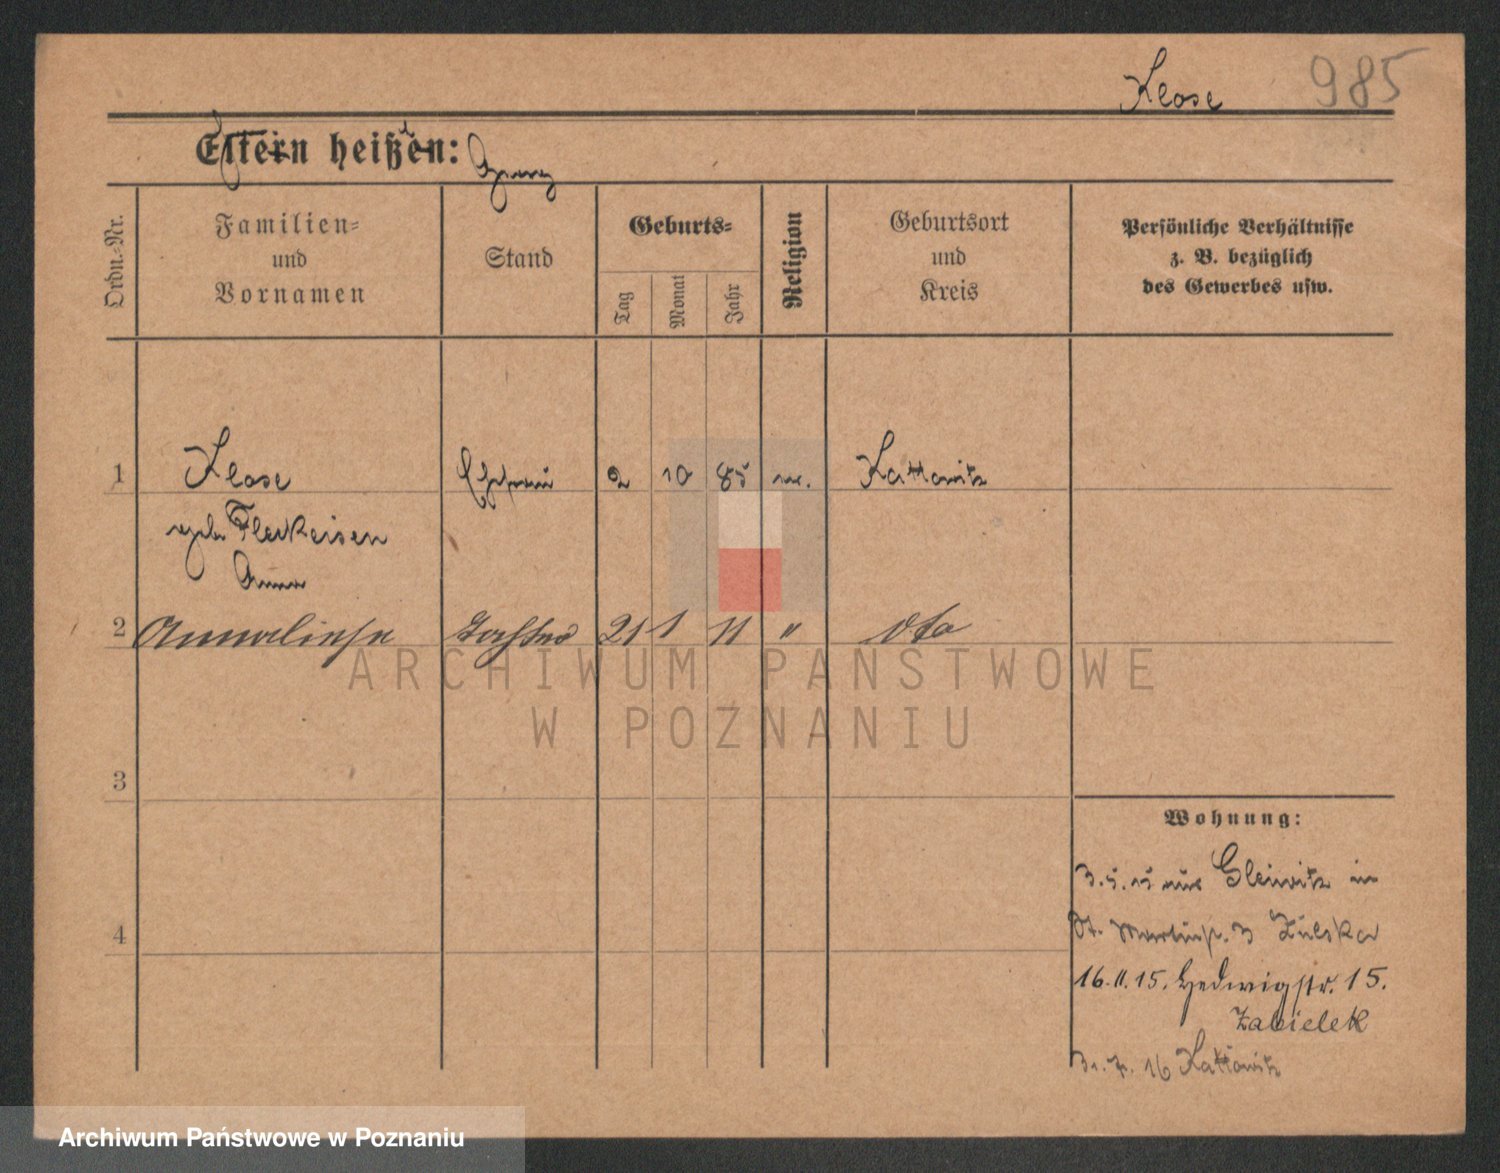 Klose 985
Eltern heißen:
Georg
Ordn.-Nr.
Familien-
und
Vornamen
Stand
Geburts-
Tag
Monat
Jahr
Religion
Geburtsort
und
Kreis
Persönliche Verhältnisse
z. B. bezüglich
des Gewerbes usw.
1 Klose Ehefrau 2 10 85 Kattowitz
geb. Fleckeisen
Anna
2 Annaliese Tochter 21 1 11 " dto
3
4
Wohnung:
3.5.15 aus Gleiwitz in
St. Martinstr. 3 Zulska
16.11.15. Hedwigstr. 15.
Zabielek
31.7.16 Kattowitz
ARCHIWUM PAŃSTWOWE
W POZNANIU
Archiwum Państwowe w Poznaniu